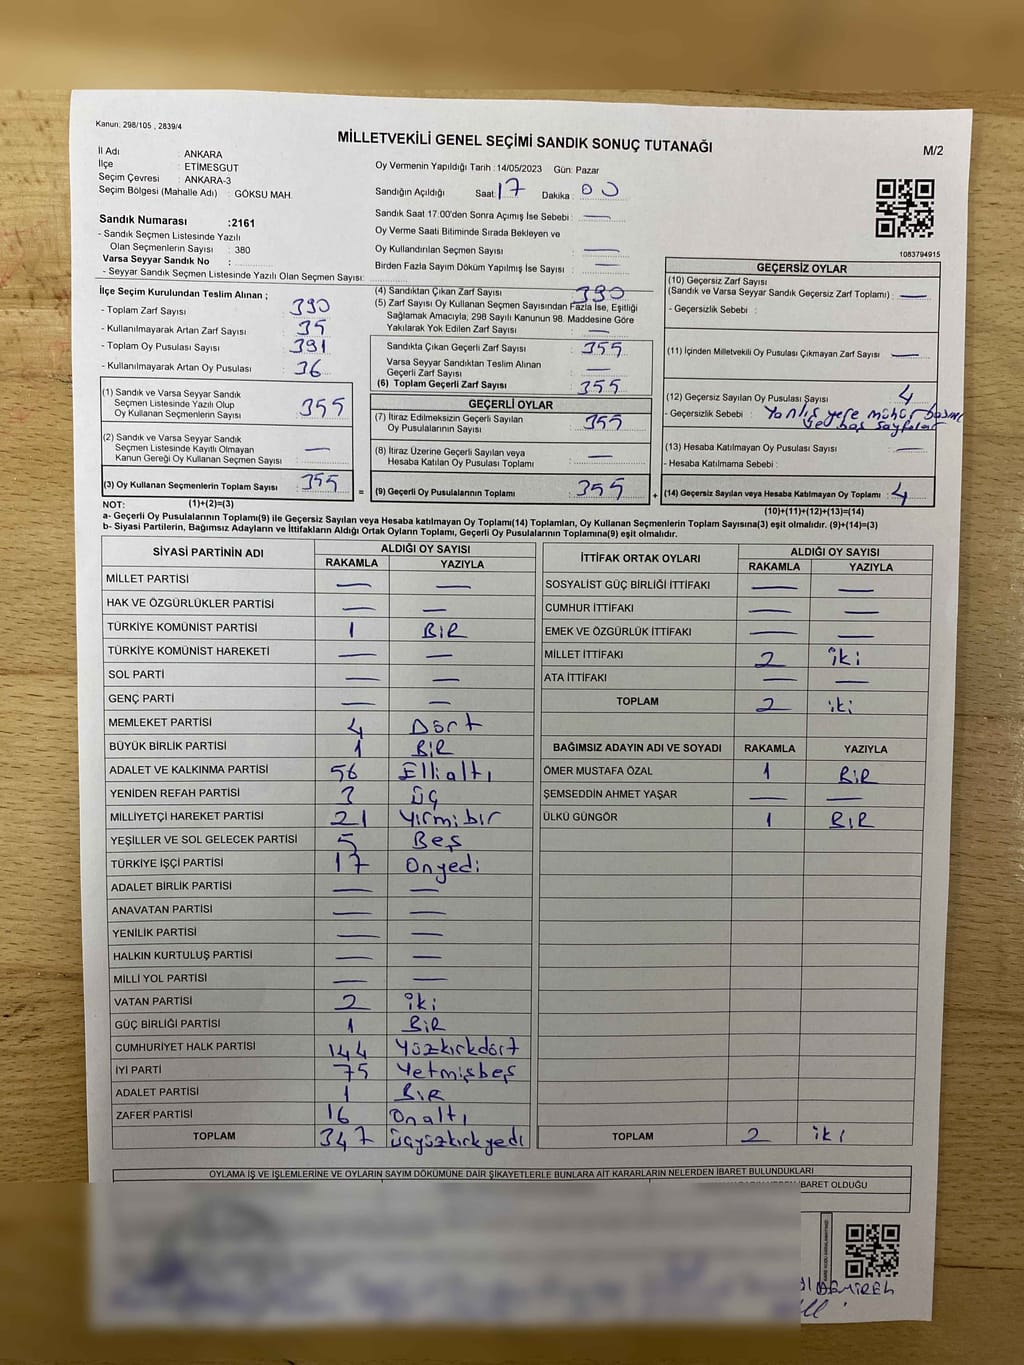 Kanun: 298/105 , 2839/4
MİLLETVEKİLİ GENEL SEÇİMİ SANDIK SONUÇ TUTANAĞI
M/2
İl Adı : ANKARA
İlçe : ETİMESGUT
Seçim Çevresi : ANKARA-3
Seçim Bölgesi (Mahalle Adı) : GÖKSU MAH.
Sandık Numarası :2161
- Sandık Seçmen Listesinde Yazılı
Olan Seçmenlerin Sayısı : 380
Varsa Seyyar Sandık No :
- Seyyar Sandık Seçmen Listesinde Yazılı Olan Seçmen Sayısı:
Oy Vermenin Yapıldığı Tarih :14/05/2023 Gün: Pazar
Sandığın Açıldığı Saat: 17 Dakika : 00
Sandık Saat 17.00'den Sonra Açımış İse Sebebi : —
Oy Verme Saati Bitiminde Sırada Bekleyen ve
Oy Kullandırılan Seçmen Sayısı : —
Birden Fazla Sayım Döküm Yapılmış İse Sayısı : —
1083794915
İlçe Seçim Kurulundan Teslim Alınan ;
- Toplam Zarf Sayısı : 390
- Kullanılmayarak Artan Zarf Sayısı : 35
- Toplam Oy Pusulası Sayısı : 391
- Kullanılmayarak Artan Oy Pusulası : 36
(1) Sandık ve Varsa Seyyar Sandık
Seçmen Listesinde Yazılı Olup
Oy Kullanan Seçmenlerin Sayısı : 355
(2) Sandık ve Varsa Seyyar Sandık
Seçmen Listesinde Kayıtlı Olmayan
Kanun Gereği Oy Kullanan Seçmen Sayısı : —
(3) Oy Kullanan Seçmenlerin Toplam Sayısı : 355
(4) Sandıktan Çıkan Zarf Sayısı : 390
(5) Zarf Sayısı Oy Kullanan Seçmen Sayısından Fazla İse, Eşitliği
Sağlamak Amacıyla, 298 Sayılı Kanunun 98. Maddesine Göre
Yakılarak Yok Edilen Zarf Sayısı : —
Sandıkta Çıkan Geçerli Zarf Sayısı : 355
Varsa Seyyar Sandıktan Teslim Alınan
Geçerli Zarf Sayısı : —
(6) Toplam Geçerli Zarf Sayısı : 355
GEÇERLİ OYLAR
(7) İtiraz Edilmeksizin Geçerli Sayılan
Oy Pusulalarının Sayısı : 355
(8) İtiraz Üzerine Geçerli Sayılan veya
Hesaba Katılan Oy Pusulası Toplamı : —
= (9) Geçerli Oy Pusulalarının Toplamı : 355 +
GEÇERSİZ OYLAR
(10) Geçersiz Zarf Sayısı
(Sandık ve Varsa Seyyar Sandık Geçersiz Zarf Toplamı) : —
- Geçersizlik Sebebi :
(11) İçinden Milletvekili Oy Pusulası Çıkmayan Zarf Sayısı : —
(12) Geçersiz Sayılan Oy Pusulası Sayısı : 4
- Geçersizlik Sebebi : Yanlış yere mühür basma
ve boş sayfalar
(13) Hesaba Katılmayan Oy Pusulası Sayısı : —
- Hesaba Katılmama Sebebi :
(14) Geçersiz Sayılan veya Hesaba Katılmayan Oy Toplamı : 4
NOT: (1)+(2)=(3)
(10)+(11)+(12)+(13)=(14)
a- Geçerli Oy Pusulalarının Toplamı(9) ile Geçersiz Sayılan veya Hesaba katılmayan Oy Toplamı(14) Toplamları, Oy Kullanan Seçmenlerin Toplam Sayısına(3) eşit olmalıdır. (9)+(14)=(3)
b- Siyasi Partilerin, Bağımsız Adayların ve İttifakların Aldığı Ortak Oyların Toplamı, Geçerli Oy Pusulalarının Toplamına(9) eşit olmalıdır.
SİYASİ PARTİNİN ADI ALDIĞI OY SAYISI
RAKAMLA YAZIYLA
MİLLET PARTİSİ — —
HAK VE ÖZGÜRLÜKLER PARTİSİ — —
TÜRKİYE KOMÜNİST PARTİSİ 1 BİR
TÜRKİYE KOMÜNİST HAREKETİ — —
SOL PARTİ — —
GENÇ PARTİ — —
MEMLEKET PARTİSİ 4 Dört
BÜYÜK BİRLİK PARTİSİ 1 BİR
ADALET VE KALKINMA PARTİSİ 56 Ellialtı
YENİDEN REFAH PARTİSİ 3 üç
MİLLİYETÇİ HAREKET PARTİSİ 21 Yirmibir
YEŞİLLER VE SOL GELECEK PARTİSİ 5 Beş
TÜRKİYE İŞÇİ PARTİSİ 17 Onyedi
ADALET BİRLİK PARTİSİ — —
ANAVATAN PARTİSİ — —
YENİLİK PARTİSİ — —
HALKIN KURTULUŞ PARTİSİ — —
MİLLİ YOL PARTİSİ — —
VATAN PARTİSİ 2 iki
GÜÇ BİRLİĞİ PARTİSİ 1 BİR
CUMHURİYET HALK PARTİSİ 144 Yüzkırkdört
İYİ PARTİ 75 Yetmişbeş
ADALET PARTİSİ 1 BİR
ZAFER PARTİSİ 16 Onaltı
TOPLAM 347 üçyüzkırkyedi
İTTİFAK ORTAK OYLARI ALDIĞI OY SAYISI
RAKAMLA YAZIYLA
SOSYALİST GÜÇ BİRLİĞİ İTTİFAKI — —
CUMHUR İTTİFAKI — —
EMEK VE ÖZGÜRLÜK İTTİFAKI — —
MİLLET İTTİFAKI 2 iki
ATA İTTİFAKI — —
TOPLAM 2 iki
BAĞIMSIZ ADAYIN ADI VE SOYADI RAKAMLA YAZIYLA
ÖMER MUSTAFA ÖZAL 1 BİR
ŞEMSEDDİN AHMET YAŞAR — —
ÜLKÜ GÜNGÖR 1 BİR
TOPLAM 2 iki
OYLAMA İŞ VE İŞLEMLERİNE VE OYLARIN SAYIM DÖKÜMÜNE DAİR ŞİKAYETLERLE BUNLARA AİT KARARLARIN NELERDEN İBARET BULUNDUKLARI
İBARET OLDUĞU
DEMİREL